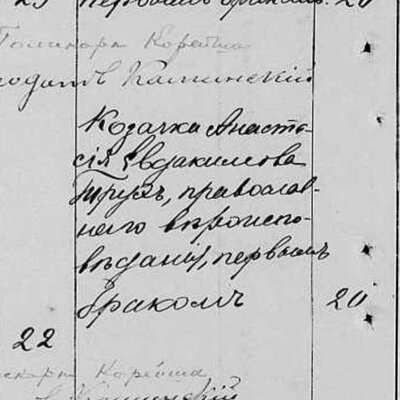 23 первымъ бракомъ. 20
Поликарпъ Корейша
Каминскій
Козачка Анаста-
сія Евдакимова
Трушъ, православ-
наго вѣроиспо-
вѣданія, первымъ
бракомъ 20
22
Корейша